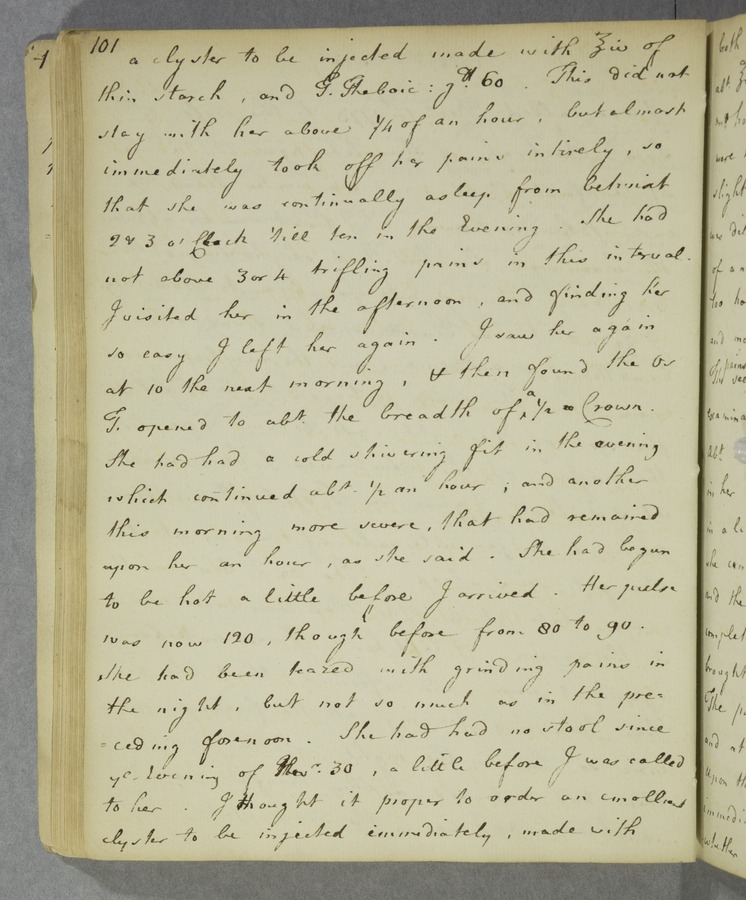 101
a clyster to be injected made with ℥iv of
thin starch, and G. Thebaic: gtt 60. This did not
stay with her above 1/4 of an hour, but almost
immediately took off her pains intirely, so
that she was continually asleep from betwixt
2 & 3 o'Clock 'till ten in the Evening. She had
not above 3 or 4 trifling pains in this interval.
I visited her in the afternoon, and finding her
so easy I left her again. I saw her again
at 10 the next morning, & then found the Os
T. opened to abt. the breadth of a 1/2 Crown.
She had had a cold shivering fit in the evening
which continued abt. 1/2 an hour; and another
this morning more severe, that had remained
upon her an hour, as she said. She had begun
to be hot a little before I arrived. Her pulse
was now 120, though before from 80 to 90.
She had been teazed with grinding pains in
the night, but not so much as in the pre=
=ceding forenoon. She had had no stool since
ye. Evening of Novr. 30, a little before I was called
to her. I thought it proper to order an emollient
clyster to be injected immediately, made with